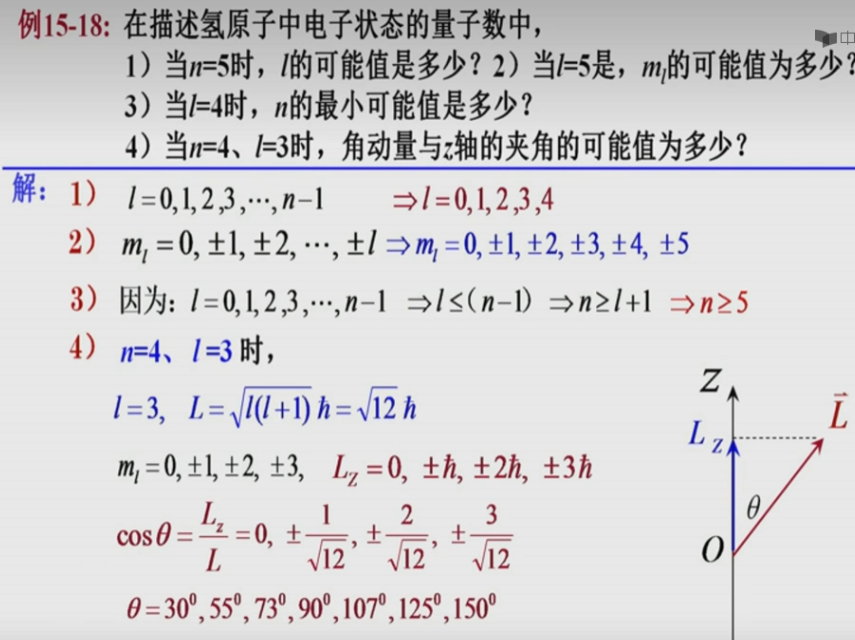 例15-18: 在描述氢原子中电子状态的量子数中，
1）当n=5时，l的可能值是多少？2）当l=5是，mₗ的可能值为多少？
3）当l=4时，n的最小可能值是多少？
4）当n=4、l=3时，角动量与z轴的夹角的可能值为多少？
解： 1） l=0,1,2,3,⋯,n−1 ⇒l=0,1,2,3,4
2） mₗ=0, ±1, ±2, ⋯, ±l ⇒mₗ=0, ±1, ±2, ±3, ±4, ±5
3） 因为: l=0,1,2,3,⋯,n−1 ⇒l≤(n−1) ⇒n≥l+1 ⇒n≥5
4） n=4、l=3时，
l=3, L=√(l(l+1)) ħ=√12 ħ
mₗ=0, ±1, ±2, ±3, L_Z=0, ±ħ, ±2ħ, ±3ħ
cosθ=L_z/L=0, ±1/√12, ±2/√12, ±3/√12
θ=30⁰,55⁰,73⁰,90⁰,107⁰,125⁰,150⁰
Z
L_Z
L⃗
θ
O
中